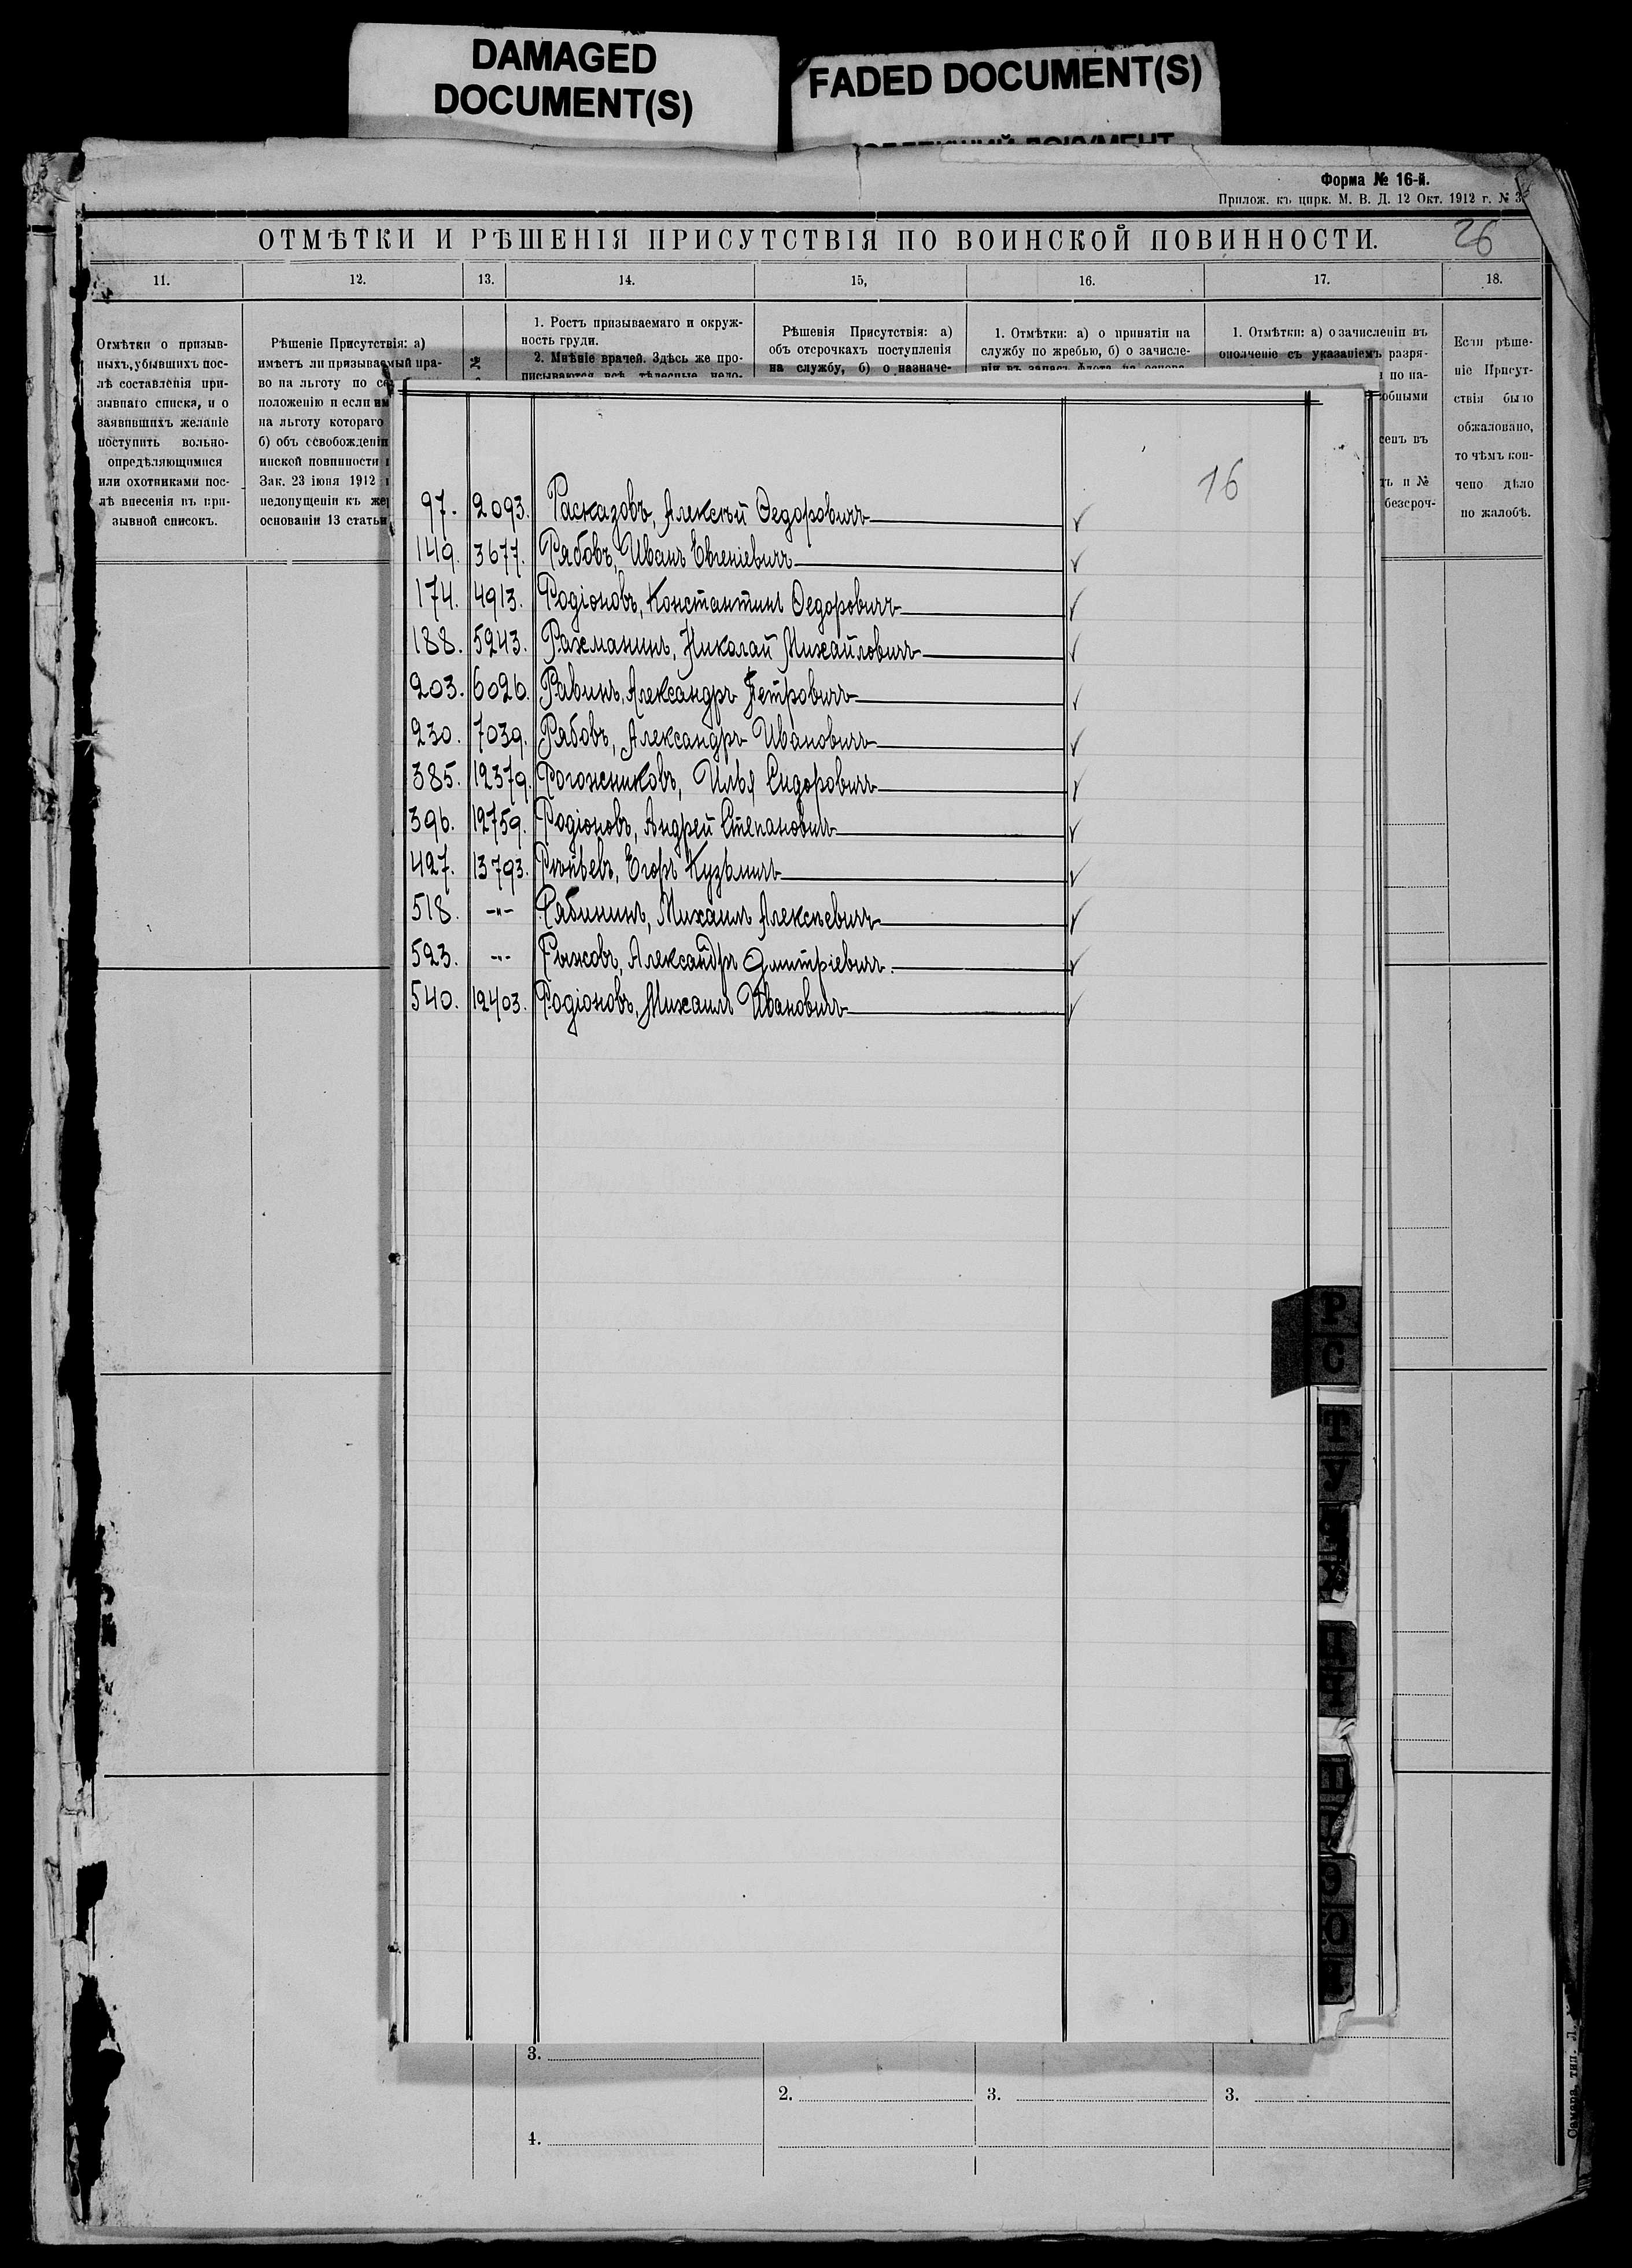 DAMAGED
DOCUMENT(S)
FADED DOCUMENT(S)
Форма № 16-й.
Прилож. къ цирк. М. В. Д. 12 Окт. 1912 г. №
ОТМѢТКИ И РѢШЕНІЯ ПРИСУТСТВІЯ ПО ВОИНСКОЙ ПОВИННОСТИ.
26
11. 12. 13. 14. 15, 16. 17. 18.
Отмѣтки о призыв-
ныхъ, убывшихъ пос-
лѣ составленія при-
зывнаго списка, и о
заявившихъ желаніе
поступить вольно-
опредѣляющимися
или охотниками пос-
лѣ внесенія въ при-
зывной списокъ.
Рѣшеніе Присутствія: а)
имѣетъ ли призываемый пра-
во на льготу по
положенію и если
на льготу котораго
б) объ освобожденіи
инской повинности
Зак. 23 іюня 1912
недопущеніи къ
основаніи 13 статьи
№
1. Ростъ призываемаго и окруж-
ность груди.
2. Мнѣніе врачей. Здѣсь же про-
писываются всѣ тѣлесные недо-
Рѣшенія Присутствія: а)
объ отсрочкахъ поступленія
на службу, б) о назначе-
1. Отмѣтки: а) о принятіи на
службу по жребью, б) о зачисле-
ніи въ запасъ флота на основа-
1. Отмѣтки: а) о зачисленіи въ
ополченіе съ указаніемъ разря-
по на-
въ
и №
безсроч-
Если рѣше-
ніе Присут-
ствія было
обжаловано,
то чѣмъ кон-
чено дѣло
по жалобѣ.
16
97. 2093. Расказовъ, Алексѣй Ѳедоровичъ
149. 3677. Рябовъ, Иванъ Евгеніевичъ
174. 4913. Родіоновъ, Константинъ Ѳедоровичъ
188. 5243. Рахманинъ, Николай Михайловичъ
203. 6026. Равинъ, Александръ Петровичъ
230. 7039. Рябовъ, Александръ Ивановичъ
385. 12379. Рогожниковъ, Илья Сидоровичъ
396. 12759. Родіоновъ, Андрей Степановичъ
427. 13793. Егоръ Кузьмичъ
518. -"- Рябининъ, Михаилъ Алексѣевичъ
523. -"- Рыжовъ, Александръ Дмитріевичъ
540. 12403. Родіоновъ, Михаилъ Ивановичъ
Р
С
Т
У
3.
2. 3. 3.
4.